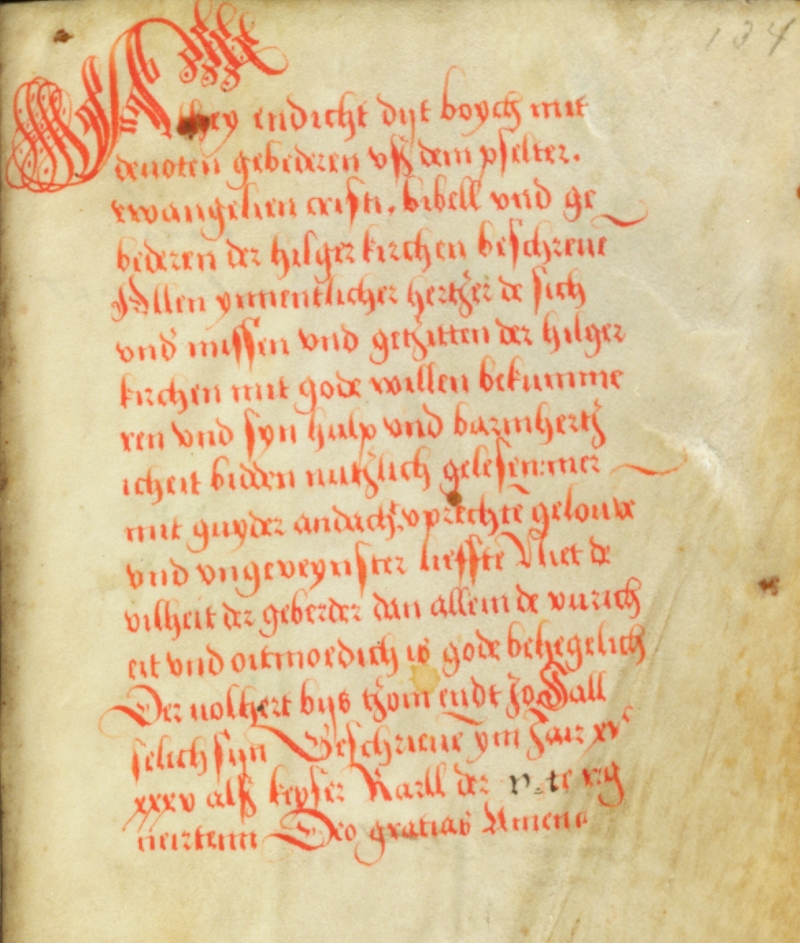 134
Alhey endicht dyt boych mit
deuoten gebederen vſz dem pſelter.
ewangelien criſti. bibell vnd ge
bederen der hilger kirchen beſchreuē
Allen ynnentlicher hertzer de ſich
vnd miſſen vnd getzitten der hilger
kirchen mit gode willen bekumme
ren vnd ſyn hulp vnd barmhertz
icheit bidden nutzlich geleſen mer
mit guyder andacht, vprechtē gelouve
vnd vngeveynſter lieffte Niet de
vilheit der geberder dan allein de vurich
eit vnd oitmoedich is gode behegelich
Der volhert bys tzom endt Jo Sall
ſelich ſijn Beſchrieuē ym Jair xvᶜ
xxxv alſz keyſer Karll der v=te reg
neirtenn Deo gratias Amen